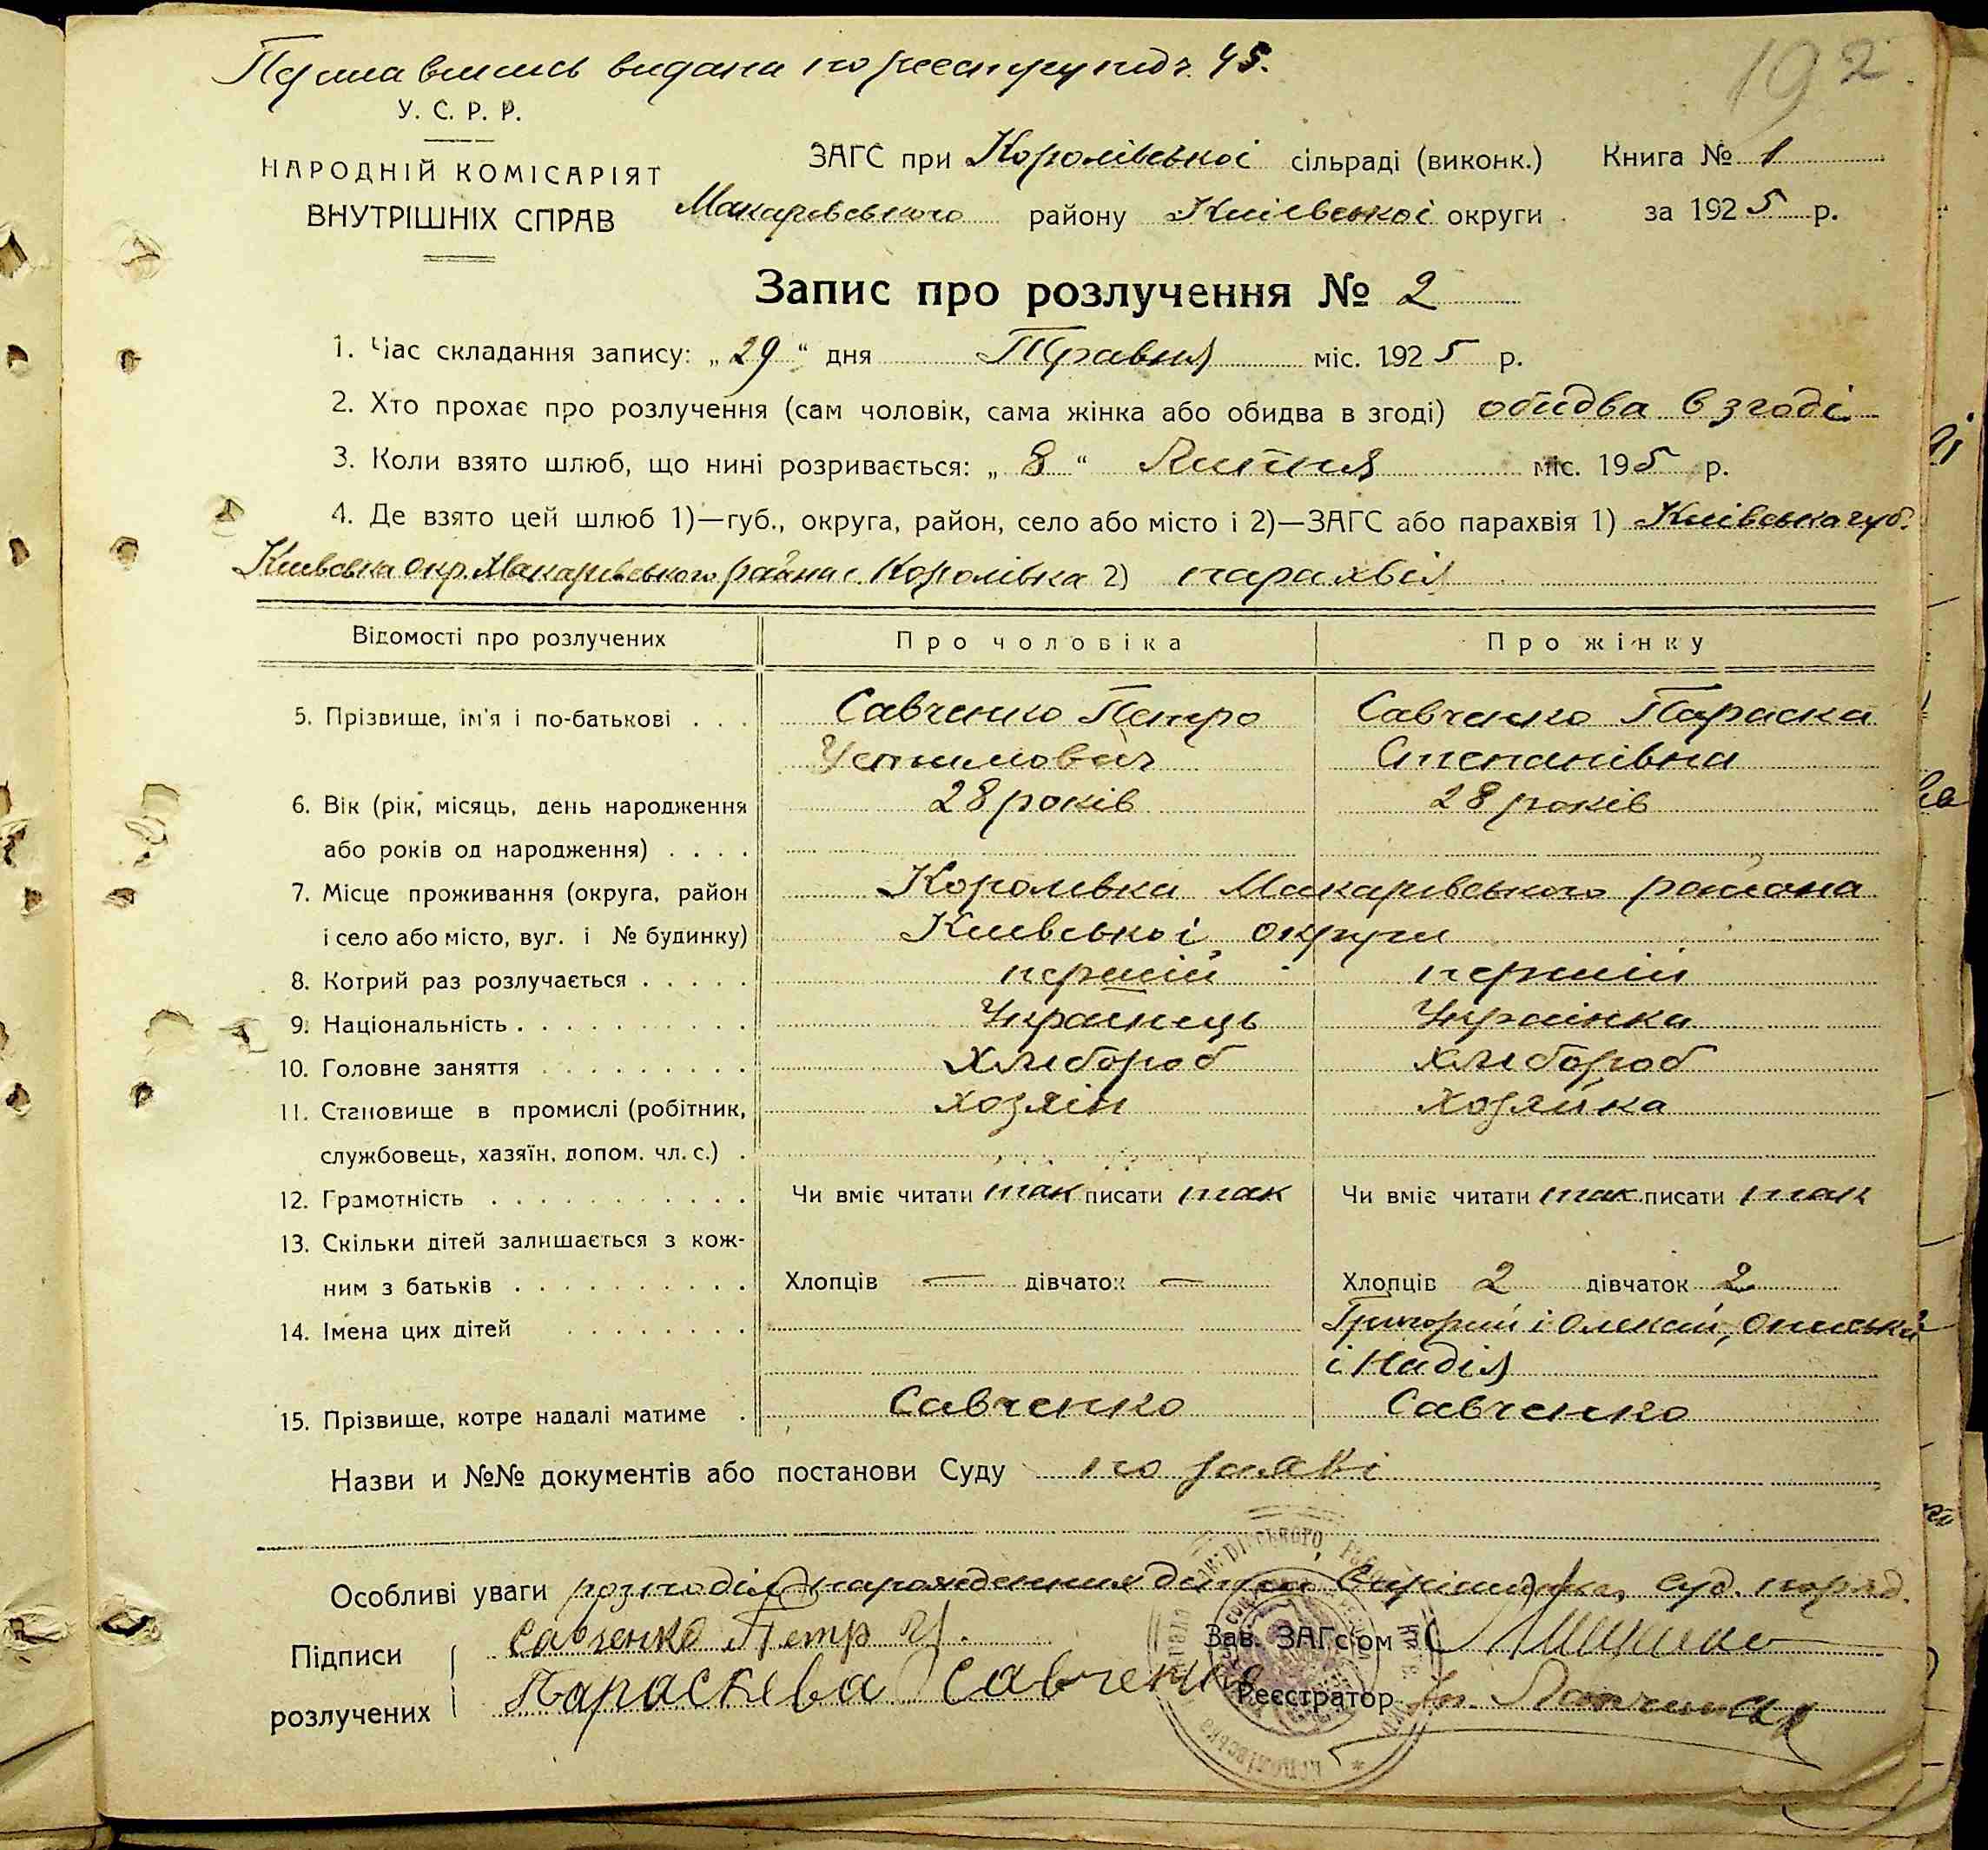 Перша випись видана по реестру під ч. 45.
192
У. С. Р. Р.
НАРОДНІЙ КОМІСАРІЯТ
ВНУТРІШНІХ СПРАВ
ЗАГС при Королівської сільраді (виконк.) Книга № 1
Макарівського району Київської округи за 1925 р.
Запис про розлучення № 2
1. Час складання запису: „29“ дня Травня міс. 1925 р.
2. Хто прохає про розлучення (сам чоловік, сама жінка або обидва в згоді) обидва в згоді
3. Коли взято шлюб, що нині розривається: „8“ Липня міс. 195 р.
4. Де взято цей шлюб 1)—губ., округа, район, село або місто і 2)—ЗАГС або парахвія 1) Київська губ.
Київська окр. Макарівського району с. Королівка 2) парахвія
Відомості про розлучених Про чоловіка Про жінку
5. Прізвище, ім'я і по-батькові . . . Савченко Петро Савченко Параска
Устимович Степанівна
6. Вік (рік, місяць, день народження 28 років 28 років
або років од народження) . . . .
7. Місце проживання (округа, район Королівка Макарівського района
і село або місто, вул. і № будинку) Київської округи
8. Котрий раз розлучається . . . . . перший перший
9. Національність . . . . . . . . . . Українець Українка
10. Головне заняття . . . . . . . . . Хлібороб Хлібороб
11. Становище в промислі (робітник, хозяїн хозяйка
службовець, хазяїн, допом. чл. с.) .
12. Грамотність . . . . . . . . . . . Чи вміє читати так писати так Чи вміє читати так писати так
13. Скільки дітей залишається з кож-
ним з батьків . . . . . . . . . . Хлопців — дівчаток — Хлопців 2 дівчаток 2
14. Імена цих дітей . . . . . . . . Григорий і Олексій, Ониська
і Надія
15. Прізвище, котре надалі матиме . Савченко Савченко
Назви и №№ документів або постанови Суду по заяві
Особливі уваги розподіл народження дітей суд. поряд.
Підписи Савченко Петр У. Зав. ЗАГс'ом
розлучених Параскева Савченко Реєстратор